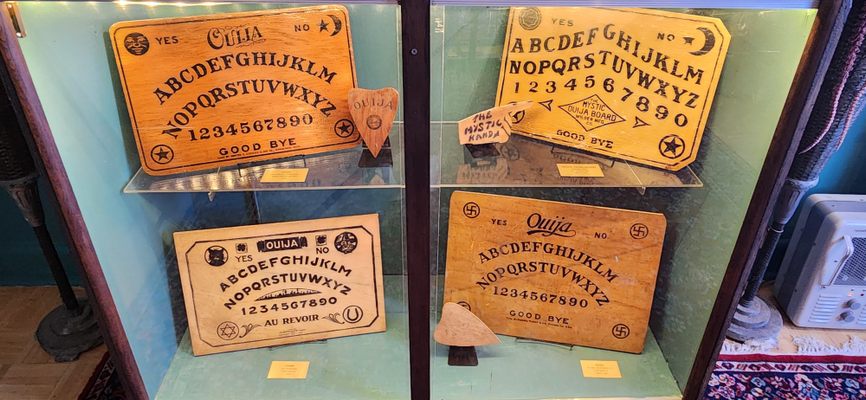 YES OUIJA NO
ABCDEFGHIJKLM
NOPQRSTUVWXYZ
1234567890
GOOD BYE
OUIJA
YES NO
ABCDEFGHIJKLM
NOPQRSTUVWXYZ
1234567890
MYSTIC
OUIJA BOARD
GOOD BYE
THE
MYSTIC
HANDA
OUIJA
YES NO
ABCDEFGHIJKLM
NOPQRSTUVWXYZ
1234567890
AU REVOIR
YES Ouija NO
ABCDEFGHIJKLM
NOPQRSTUVWXYZ
1234567890
GOOD BYE